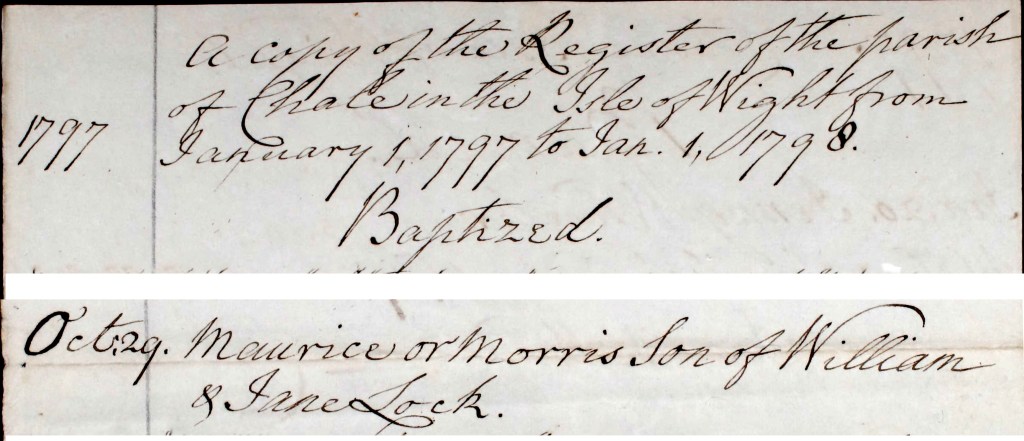 A copy of the Register of the parish
of Chale in the Isle of Wight from
1797 January 1, 1797 to Jan. 1, 1798.
Baptized.
Oct: 29. Maurice or Morris Son of William
& Jane Lock.